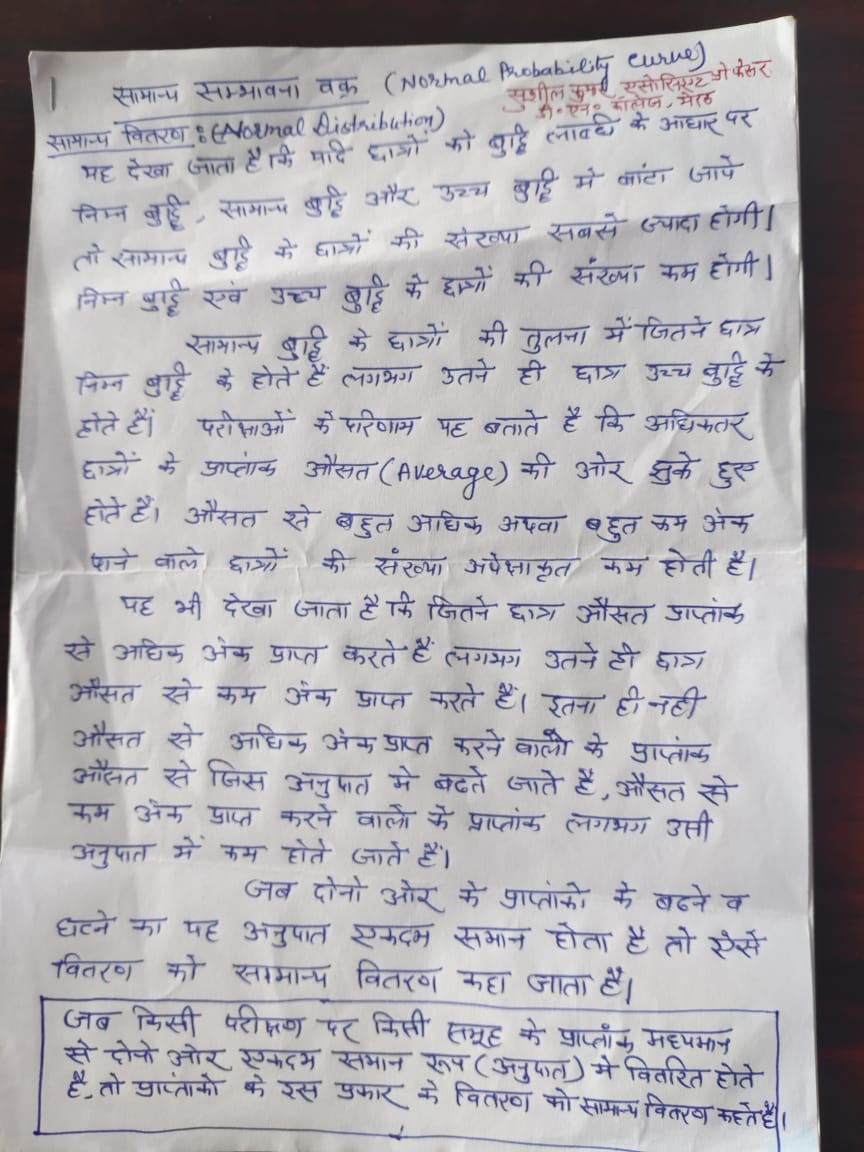 1
सामान्य सम्भावना वक्र (Normal Probability Curve)
सुशील कुमार एसोसिएट प्रोफेसर
डी॰ एन॰ कॉलेज, मेरठ
सामान्य वितरण : (Normal Distribution)
यह देखा जाता है कि यदि छात्रों को बुद्धि लब्धि के आधार पर
निम्न बुद्धि, सामान्य बुद्धि और उच्च बुद्धि मे बांटा जाये
तो सामान्य बुद्धि के छात्रों की संख्या सबसे ज्यादा होगी।
निम्न बुद्धि एवं उच्च बुद्धि के छात्रों की संख्या कम होगी।
सामान्य बुद्धि के छात्रों की तुलना में जितने छात्र
निम्न बुद्धि के होते हैं लगभग उतने ही छात्र उच्च बुद्धि के
होते हैं। परीक्षाओं के परिणाम यह बताते है कि अधिकतर
छात्रों के प्राप्तांक औसत (Average) की ओर झुके हुए
होते हैं। औसत से बहुत अधिक अथवा बहुत कम अंक
पाने वाले छात्रों की संख्या अपेक्षाकृत कम होती है।
यह भी देखा जाता है कि जितने छात्र औसत प्राप्तांक
से अधिक अंक प्राप्त करते हैं लगभग उतने ही छात्र
औसत से कम अंक प्राप्त करते हैं। इतना ही नही
औसत से अधिक अंक प्राप्त करने वालो के प्राप्तांक
औसत से जिस अनुपात मे बढते जाते है, औसत से
कम अंक प्राप्त करने वालो के प्राप्तांक लगभग उसी
अनुपात में कम होते जाते हैं।
जब दोनो ओर के प्राप्तांको के बढने व
घटने का यह अनुपात एकदम समान होता है तो ऐसे
वितरण को सामान्य वितरण कहा जाता है।
जब किसी परीक्षण पर किसी समूह के प्राप्तांक मध्यमान
से दोनो ओर एकदम समान रूप (अनुपात) मे वितरित होते
है, तो प्राप्तांको के इस प्रकार के वितरण को सामान्य वितरण कहते है।